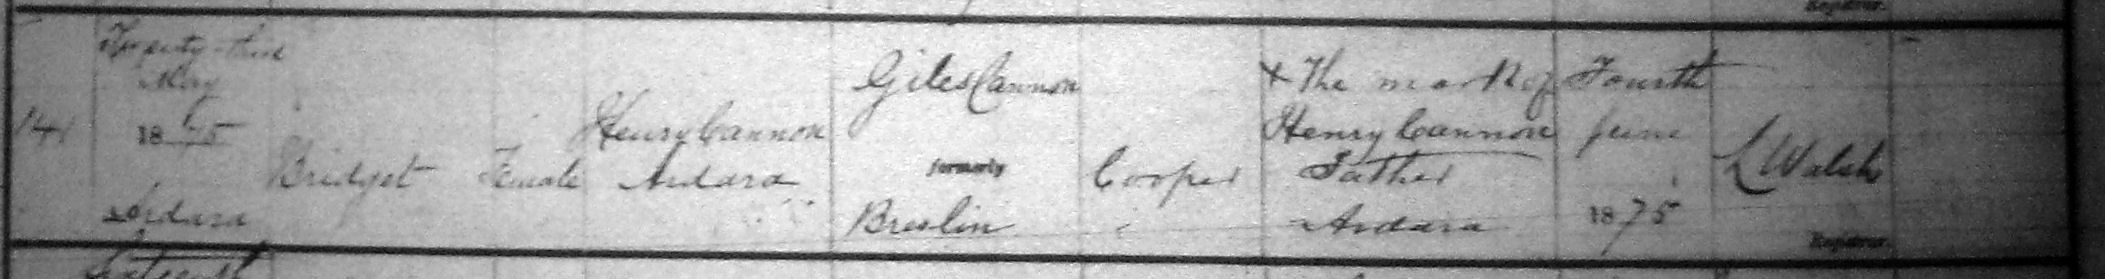 Registrar.
141
Twenty-third
May
1875
Ardara
Bridget
Female
Henry Cannon
Ardara
Giles Cannon
formerly
Breslin
Cooper
X The mark of
Henry Cannon
Father
Ardara
Fourth
June
1875
L Walsh
Registrar.